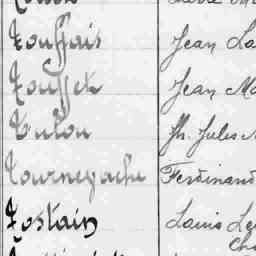 Touffais Jean La
Touffet Jean Ma
Tulou Jh. Jules
Tourneyache Ferdinand
Tostain Louis Le
Cha